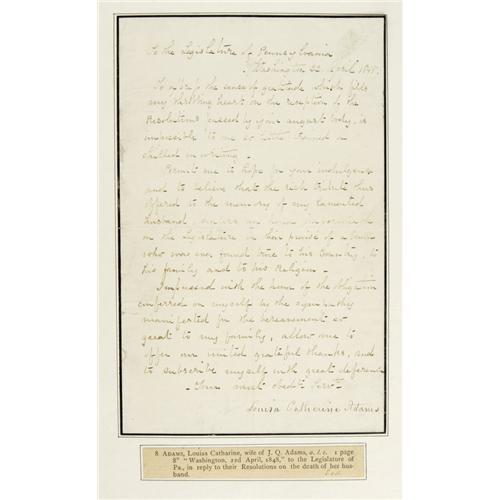 To the Legislature of Pennsylvania
Washington 22 April 1848.
To express the sense of gratitude which fills
my throbbing heart on the reception of the
Resolutions passed by your august body, is
impossible to me so little trained or
skilled in writing.
Permit me to hope for your indulgence
and to believe that the rich tribute thus
offered to the memory of my lamented
husband, an honor
on the Legislature in their praise of a man
who was ever found true to his Country, to
his family and to his Religion.
Impressed with the honor of the obligation
conferred on myself by the sympathy
manifested for the bereavement so
great to my family, allow me to
offer our united grateful thanks, and
to subscribe myself with great deference
Your most obedt Servt.
Louisa Catherine Adams.
8 ADAMS, Louisa Catharine, wife of J. Q. Adams, a. l. s. 1 page
8° "Washington, 22d April, 1848," to the Legislature of
Pa., in reply to their Resolutions on the death of her hus-
band.